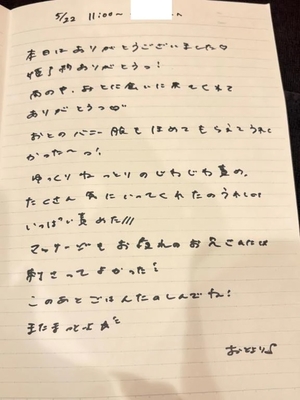 5/22 11:00〜
本日はありがとうございました♡
予約ありがとうっ!
雨の中、おとに会いに来てくれて
ありがとうっ♡
おとのバニー服もほめてもらえてうれし
かった〜っ!
ゆっくりねっとりのじわじわ責め、
たくさん気にいってくれたのうれしい
いっぱい責めた///
マッサージもお疲れのお兄さんには
刺さってよかった
このあとごはんたのしんでね!
またまってるね
おとより♪